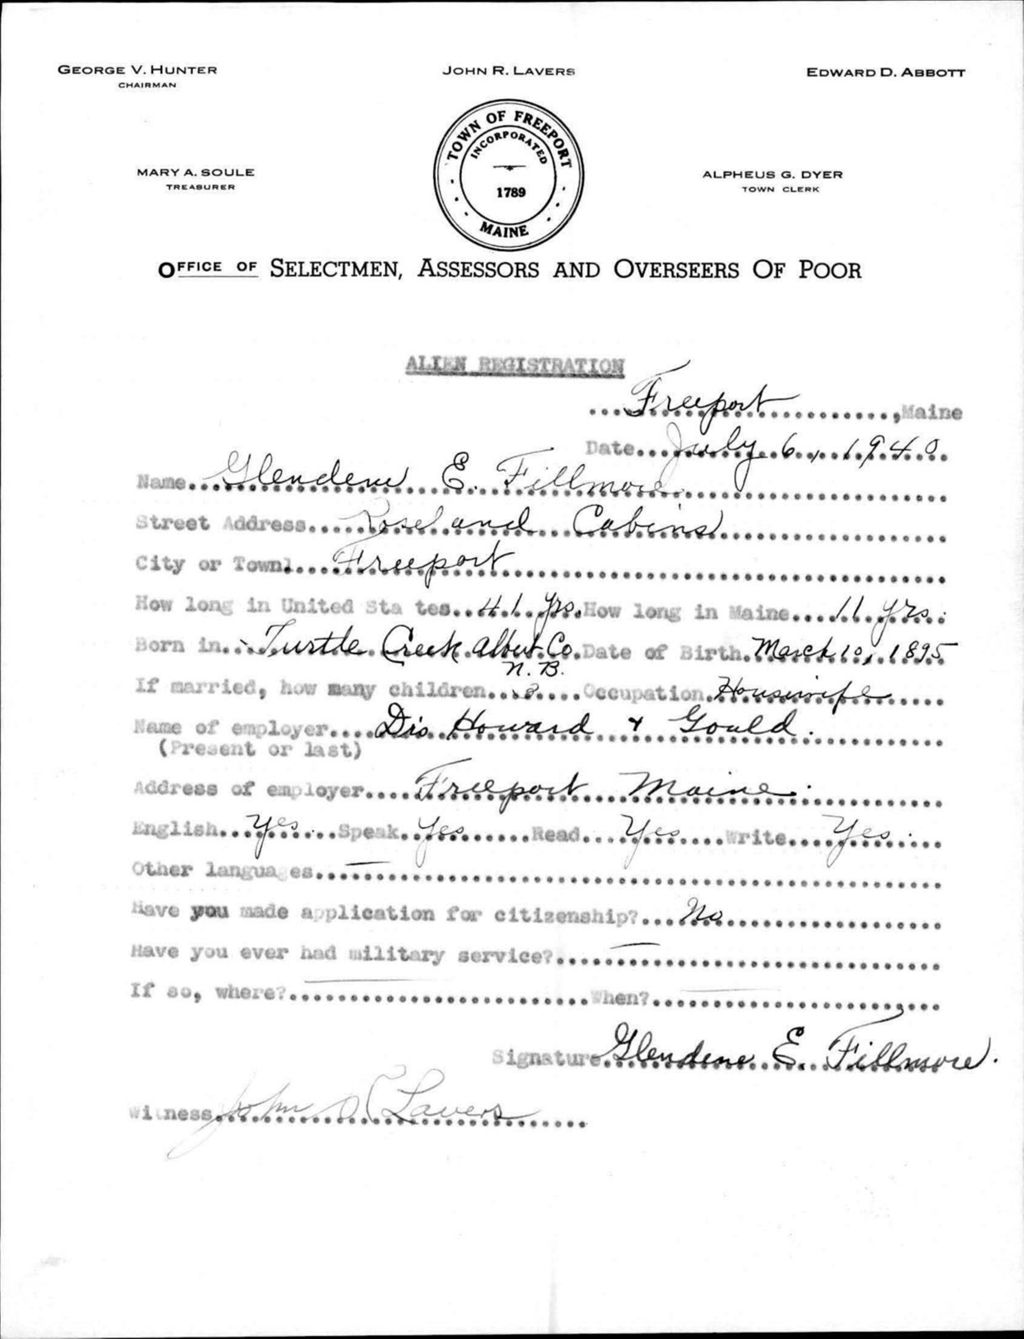 GEORGE V. HUNTER
CHAIRMAN
JOHN R. LAVERS
EDWARD D. ABBOTT
MARY A. SOULE
TREASURER
TOWN OF FREEPORT
INCORPORATED
1789
MAINE
ALPHEUS G. DYER
TOWN CLERK
OFFICE OF SELECTMEN, ASSESSORS AND OVERSEERS OF POOR
ALIEN REGISTRATION
Freeport, Maine
Date July 6, 1940.
Name Glendene E. Fillmore
Street Address Roseland Cabins
City or Town Freeport
How long in United Sta tes 41 yrs. How long in Maine 11 yrs.
Born in Turtle Creek Albert Co. Date of Birth March 10, 1895
N.B.
If married, how many children Occupation Housewife
Name of employer Howard & Gould.
(Present or last)
Address of employer Freeport Maine.
English Yes Speak Yes Read Yes Write Yes.
Other languages —
Have you made application for citizenship? No
Have you ever had military service? —
If so, where? — When? —
Signature Glendene E. Fillmore.
Witness John R Lavers